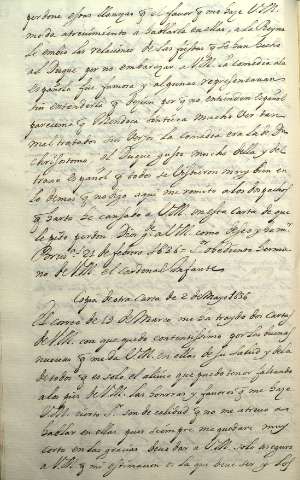 perdone estas llanezas q el favor q me haze V.M.
me da atrevimiento a hablarla en ellas, a la Reyna
le embio las relaciones de las fiestas q se han hecho
al Duque por no embarazar a V.M. la comedia a la
española fue famosa y algunos representavan
sin entenderla q dezian por q no entendian Español
parecieme q Mendoza sentiria mucho ver tan
mal tratados sus versos la comedia era la de Dn
Chrisostomo el Duque gusto mucho della y del
traxe Español q todos se vistieron muy bien en
lo demas q no digo aqui me remito a los despachos
q harto he cansado a V.M. en esta Carta de que
le pido perdon Dios gde a V.M. como desseo y
21 de febrero 1636 obediente herma
no de V.M. el Cardenal Infante
Copia de otra Carta de 2 de Mayo 636
El correo de 13 de Março me ha traydo dos Cartas
de V.M. con que quedo contentissimo por las buenas
nuevas q me da V.M. en ellas de su salud y de la
de todos q es solo el alivio que puedo tener faltando
a los pies de V.M. las honras y favores q me haze
V.M. cierto Sr. son de calidad q no me atrevo a
hablar en ellas pues siempre me quedare muy
corto en las gracias devo dar a V.M. solo aseguro
a V.M. q mi estimacion es la que deve ser y los